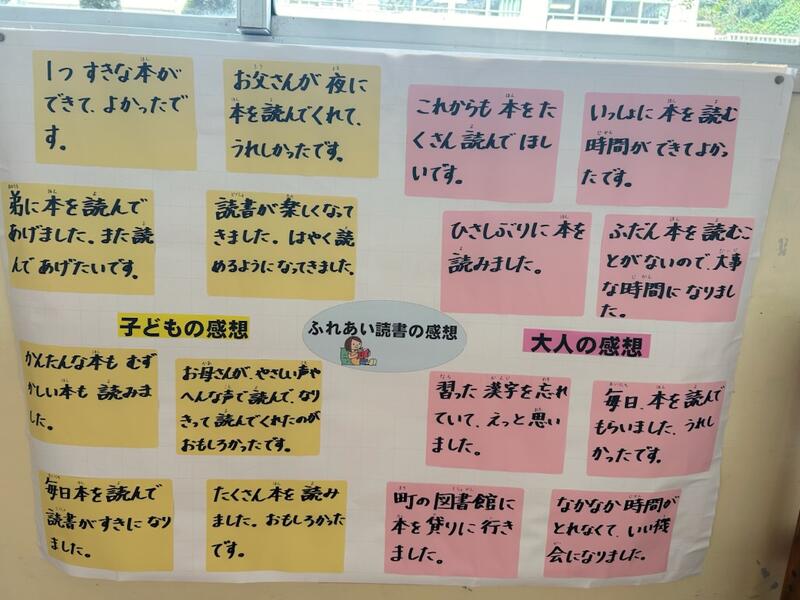 1つ すきな本が
できて、よかったで
す。
お父さんが 夜に
本を読んでくれて、
うれしかったです。
弟に本を読んで
あげました。また読
んであげたいです。
読書が楽しくなって
きました。はやく読
めるようになってきました。
子どもの感想
かんたんな本も むず
かしい本も 読みま
した。
お母さんが、やさしい声や
へんな声で読んで、なり
きって読んでくれたのが
おもしろかったです。
毎日本を読んで
読書がすきになり
ました。
たくさん本を読み
ました。おもしろかった
です。
ふれあい読書の感想
これからも 本をた
くさん読んでほし
いです。
いっしょに 本を読む
時間ができてよかっ
たです。
ひさしぶりに本を
読みました。
ふだん本を読むこ
とがないので、大事
な時間になりまし
た。
大人の感想
習った漢字を忘れ
ていて、えっと思い
ました。
毎日、本を読んで
もらいました、うれし
かったです。
町の図書館に
本を貸りに行き
ました。
なかなか時間が
とれなくて、いい機
会になりました。